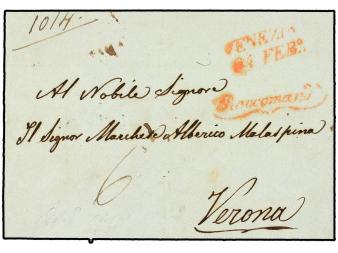 1014
VENEZIA
24 FEB.º
Raccomand
Al Nobile Signore
Il Signor Marchese Alberico Malaspina
6
Verona